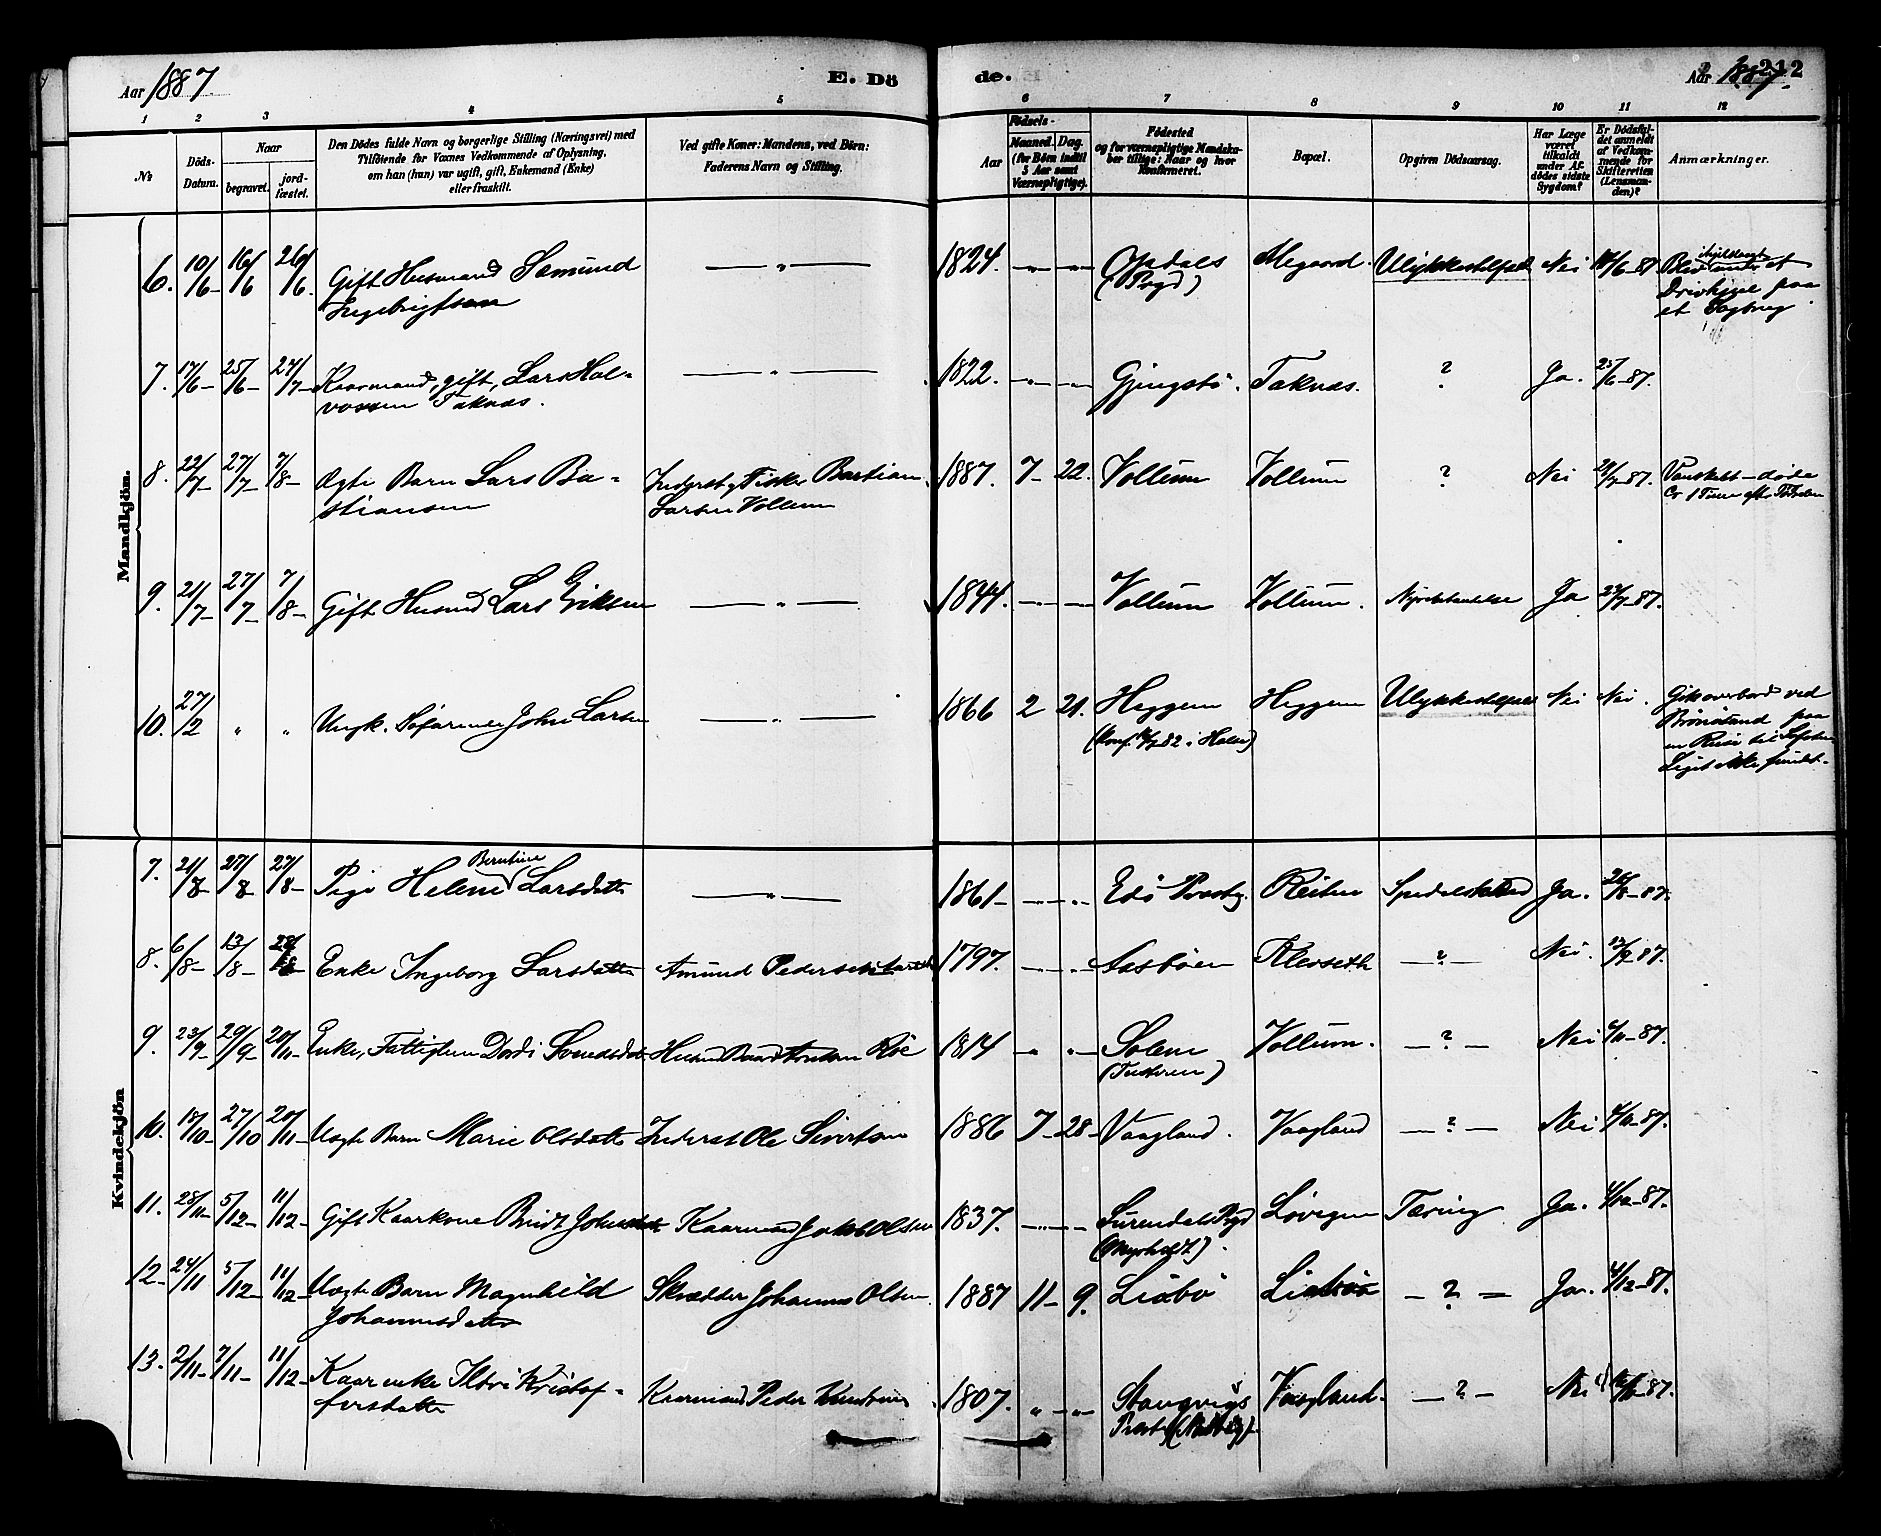 Aar 1887
E. Dö
de.
Aar 1887.
212
1 2 3 4 5 6 7 8 9 10 11 12
No
Döds-
Datum.
Naar
begravet.
jord-
fæstet.
Den Dödes fulde Navn og borgerlige Stilling (Næringsvei) med
Tilföiende for Voxnes Vedkommende af Oplysning,
om han (hun) var ugift, gift, Enkemand (Enke)
eller fraskilt.
Ved gifte Koner: Mandens, ved Börn:
Faderens Navn og Stilling.
Födsels-
Aar
Maaned. Dag.
(for Börn indtil
5 Aar samt
Værnepligtige).
Födested
og for værnepligtige Mandska-
ber tillige: Naar og hvor
konfirmeret.
Bopæl.
Opgiven Dödsaarsag.
Har Læge
været
tilkaldt
under Af-
dödes sidste
Sygdom?
Er Dödsfal-
det anmeldt
af Vedkom-
mende for
Skifteretten
(Lensman-
den)?
Anmærkninger.
Mandkjön.
6. 10/6 16/6 26/6 Gift Husmand Sæmund
Ingebrigtsen
1824. Opdals
(Pregd)
Megaard. Ulykkestilfælde Nei 87
Drivhjul paa
et Sagbrug
7. 17/6 25/6 27/7 Kaarmand, gift, Lars Hal-
vorsen Taknæs.
1822. Gjengstö. Taknæs. ? Ja. 25/6-87.
8. 22/7 27/7 7/8 Ægte Barn Lars Ba-
stiansen
Inderst og Fisker Bastian
Larsen Vollum
1887. 7 22. Vollum Vollum ? Nei 87. Vanskabt - döde
9. 21/7 27/7 7/8 Gift Husmd Lars Eriksen
1844. Vollum Vollum. Nyrebetændelse Ja 27/7-87.
10. 27/2 " " Ungk. Söfarende John Larsen
1866 2 21. Heggem
(Konf. 82 i Halse)
Heggem Ulykkestilfælde Nei Nei. Gik overbord ved
Brönösund paa
en Reise til Lofoten
Liget ikke fundet.
Kvindekjön
7. 21/8 27/8 27/8 Pige Helene Berntine Larsdatter
1861 Edö Præstg. Reiten Spedalskhed Ja. 87.
8. 6/8 13/8 28/8 Enke Ingeborg Larsdatter Amund Pedersen
1797. Aasböen Klevseth ? Nei. 13/9 87.
9. 23/9 29/9 20/11 Enke, Fattiglem Dordi Husmd Baard Röe
1814 Solem
(Tusteren)
Vollum. ? Nei 4/11-87.
10. 18/10 27/10 20/11 Uægte Barn Marie Olsdatter Inderst Ole Sivertsen
1886 7 28 Vaagland. Vaagland ? Nei 4/11-87.
11. 28/11 5/12 11/12 Gift Kaarkone Brit Johnsdatter Kaarmand Jakob Olsen
1837. Surendals Pgd
(Myrholt).
Lövigen Tæring Ja. 4/12-87.
12 24/11 5/12 11/12 Uægte Barn Magnhild
Johannesdatter
Skrædder Johannes Olsen
1887 11 9. Liabö Liaböe ? Ja. 4/12-87.
13. 2/11 7/11 11/12 Kaarenke Kristof-
fersdatter
Kaarmand Peder Knudsen
1807. Stangvigs
Præstg.
Vaagland. ? Nei 87.